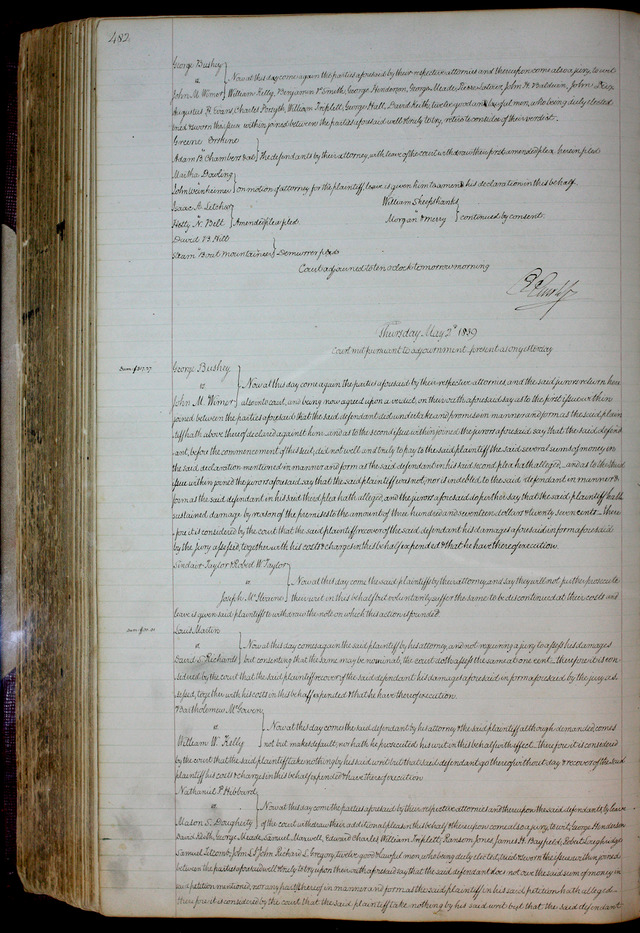 482
George Bushey
vs Now at this day come again the parties aforesaid by their respective attornies and thereupon come also a jury, to wit
John M. Wimer William Kelly, Benjamin V. Smith, George Henderson, George Meade, John H. Baldwin, John
Augustus H. Evans, Charles Forsyth, William Implett, George Hall, David Keith, twelve good and lawful men, who being duly elected
tried & sworn the issue within joined between the parties aforesaid well & truly to try, retire to consider of their verdict.
Greene Erskine
Adam B. Chambers et al The defendants by their attorney, with leave of the court withdraw their amended plea herein pled
Martha Dowling
John Weinheimer on motion of attorney for the plaintiff leave is given him to amend his declaration in this behalf.
Isaac A. Letcher William Sheepshanks
Hetty N. Belt Amended plea pled. Morgan & Merry continued by consent
David B. Hill
Steam Boat Mountaineer Demurrer pled
Court adjourned to ten o'clock tomorrow morning
Thursday May 2d 1839
Court met pursuant to adjournment present as on yesterday
George Bushey
vs Now at this day come again the parties aforesaid by their respective attornies, and the said jurors return here
John M. Wimer also into court, and being now agreed upon a verdict, on their oath aforesaid say as to the first issue within
joined between the parties aforesaid that the said defendant did undertake and promise in manner and form as the said plain
tiff hath above thereof declared against him, and as to the second issue within joined the jurors aforesaid say that the said defend
ant, before the commencement of this suit, did not well and truly to pay to the said plaintiff the said several sums of money in
the said declaration mentioned in manner and form as the said defendant in his said second plea hath alleged, and as to the third
issue within joined the jurors aforesaid say that the said plaintiff was not, nor is indebted to the said defendant in manner &
form as the said defendant in his said third plea hath alleged, and the jurors aforesaid do further say that the said plaintiff hath
sustained damage by reason of the premises to the amount of three hundred and seventeen dollars & twenty seven cents. There
fore it is considered by the court that the said plaintiff recover of the said defendant his damages aforesaid in form aforesaid
by the jury assessed, together with his costs & charges in this behalf expended & that he have thereof execution.
Sinclair Taylor & Robert W. Taylor
vs Now at this day come the said plaintiffs by their attorney, and say they will not further prosecute
Joseph McIlvaine their writ in this behalf but voluntarily suffer the same to be discontinued at their costs and
leave is given said plaintiffs to withdraw the note on which this action is founded.
Louis Martin
vs Now at this day comes again the said plaintiff by his attorney, and not requiring a jury to assess his damages
David S. Richards but consenting that the same may be nominal, the court doth assess the same at one cent. therefore it is con
sidered by the court that the said plaintiff recover of the said defendant his damages aforesaid in form aforesaid by the jury as
sessed, together with his costs in this behalf expended & that he have thereof execution.
Bartholomew McGowen
vs Now at this day comes the said defendant by his attorney & the said plaintiff although demanded, comes
William W. Kelly not but makes default, nor hath he prosecuted his writ in this behalf with effect. therefore it is considered
by the court that the said plaintiff take nothing by his said writ but that said defendant go thereof without day & recover of the said
plaintiff his costs & charges in this behalf expended & have thereof execution
Nathaniel P. Hibbard
vs Now at this day come the parties aforesaid by their respective attornies and thereupon the said defendant, by leave
Mason S. Dougherty of the court withdraws their additional pleas in this behalf & thereupon come also a jury, to wit, George Henderson
David Keith, George Meade, Samuel Maxwell, Edward Charles, William Implett, Ransom Jones, James H. Bayfield, Robert
Samuel Titcomb, John L. St John, Richard L. Gregory, twelve good & lawful men, who being duly elected, tried & sworn the issue within joined
between the parties aforesaid well & truly to try upon their oath aforesaid say that the said defendant does not owe the said sum of money in
said petition mentioned, nor any part thereof in manner and form as the said plaintiff in his said petition hath alleged.
therefore it is considered by the court that the said plaintiff take nothing by his said writ but that the said defendant